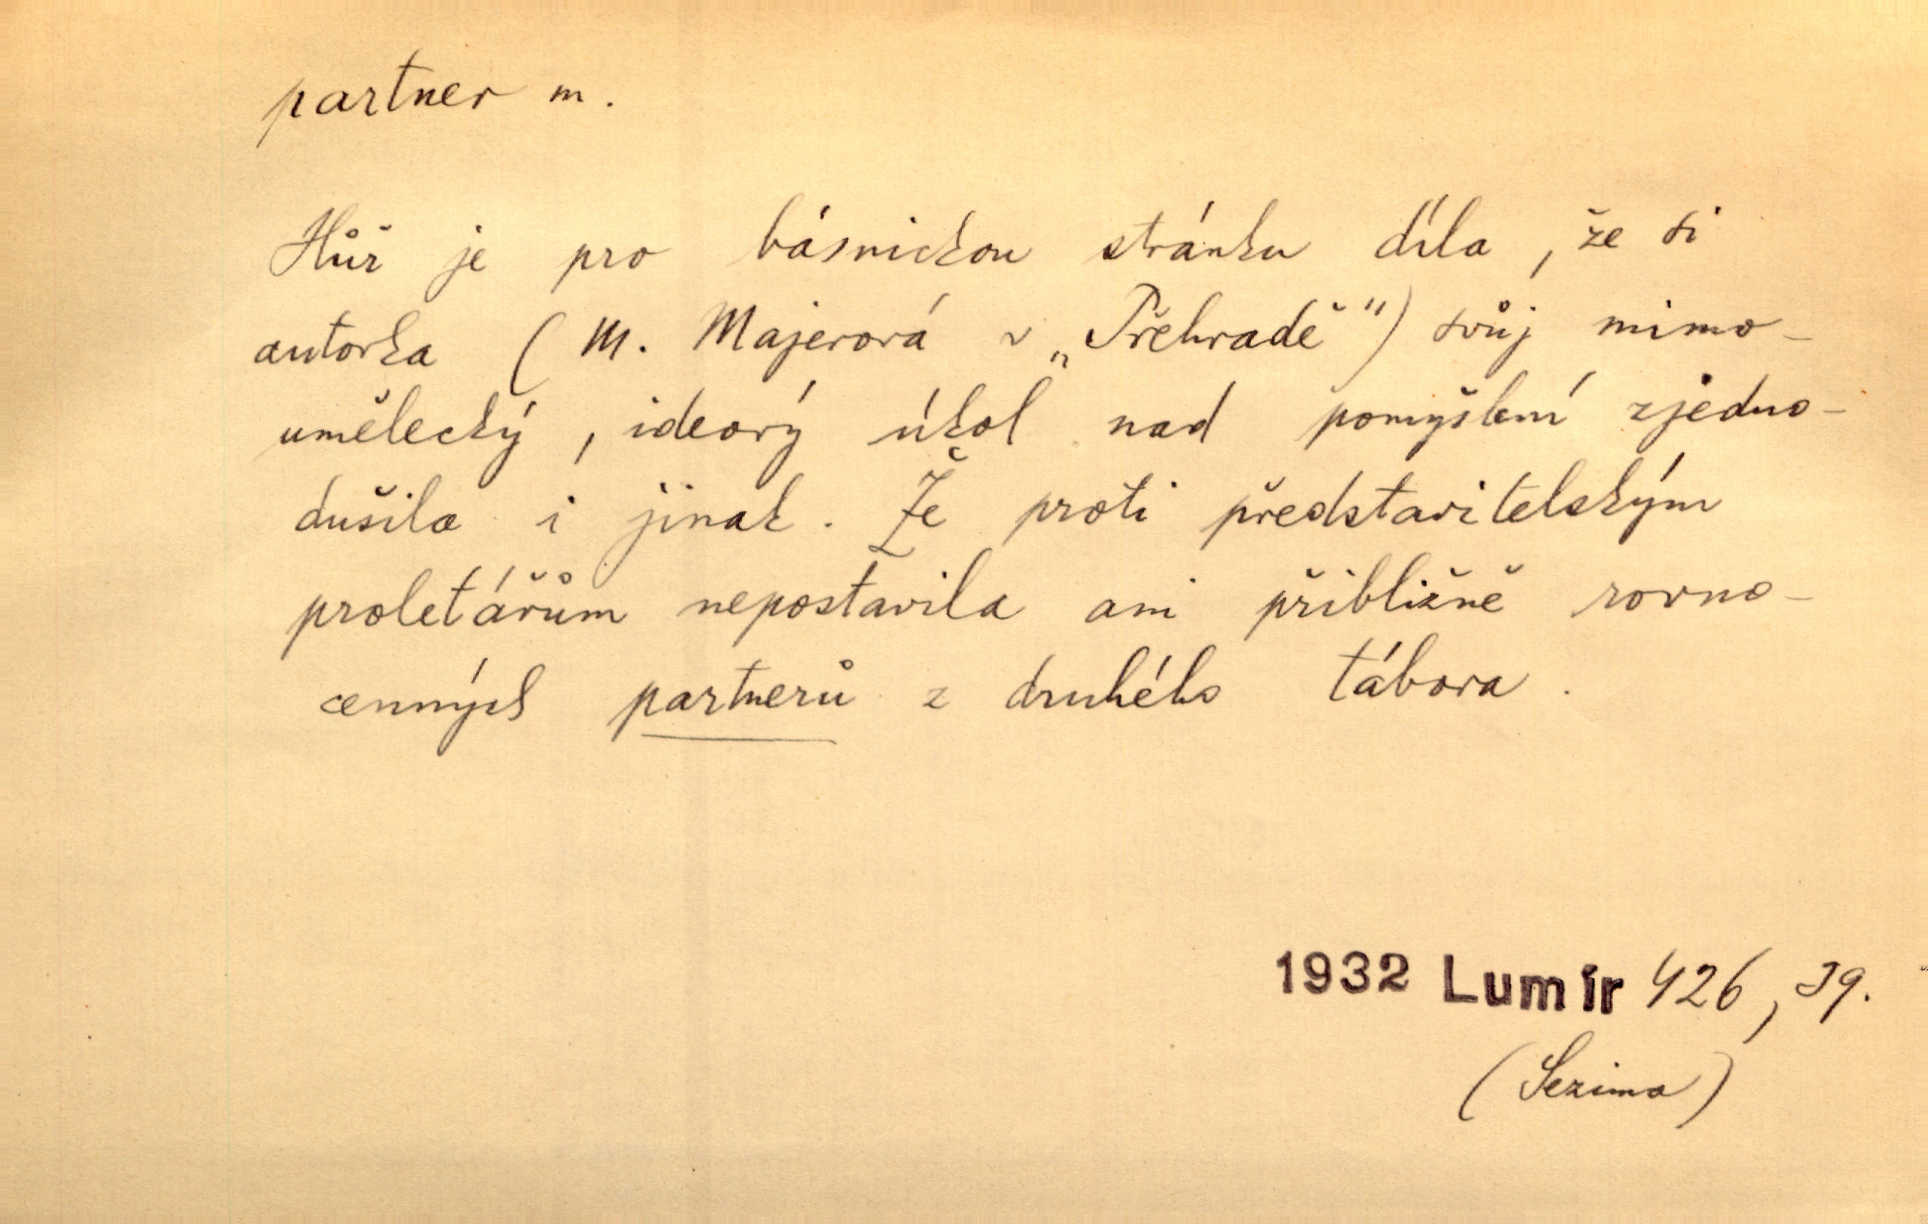 partner m.
Hůř je pro básnickou stránku díla, že si
autorka (M. Majerová v „Přehradě") svůj mimo-
umělecký, ideový úkol nad pomyšlení zjedno-
dušila i jinak. Že proti představitelským
proletářům nepostavila ani přibližně rovno-
cenných partnerů z druhého tábora.
1932 Lumír 426, J9.
(Sezima)